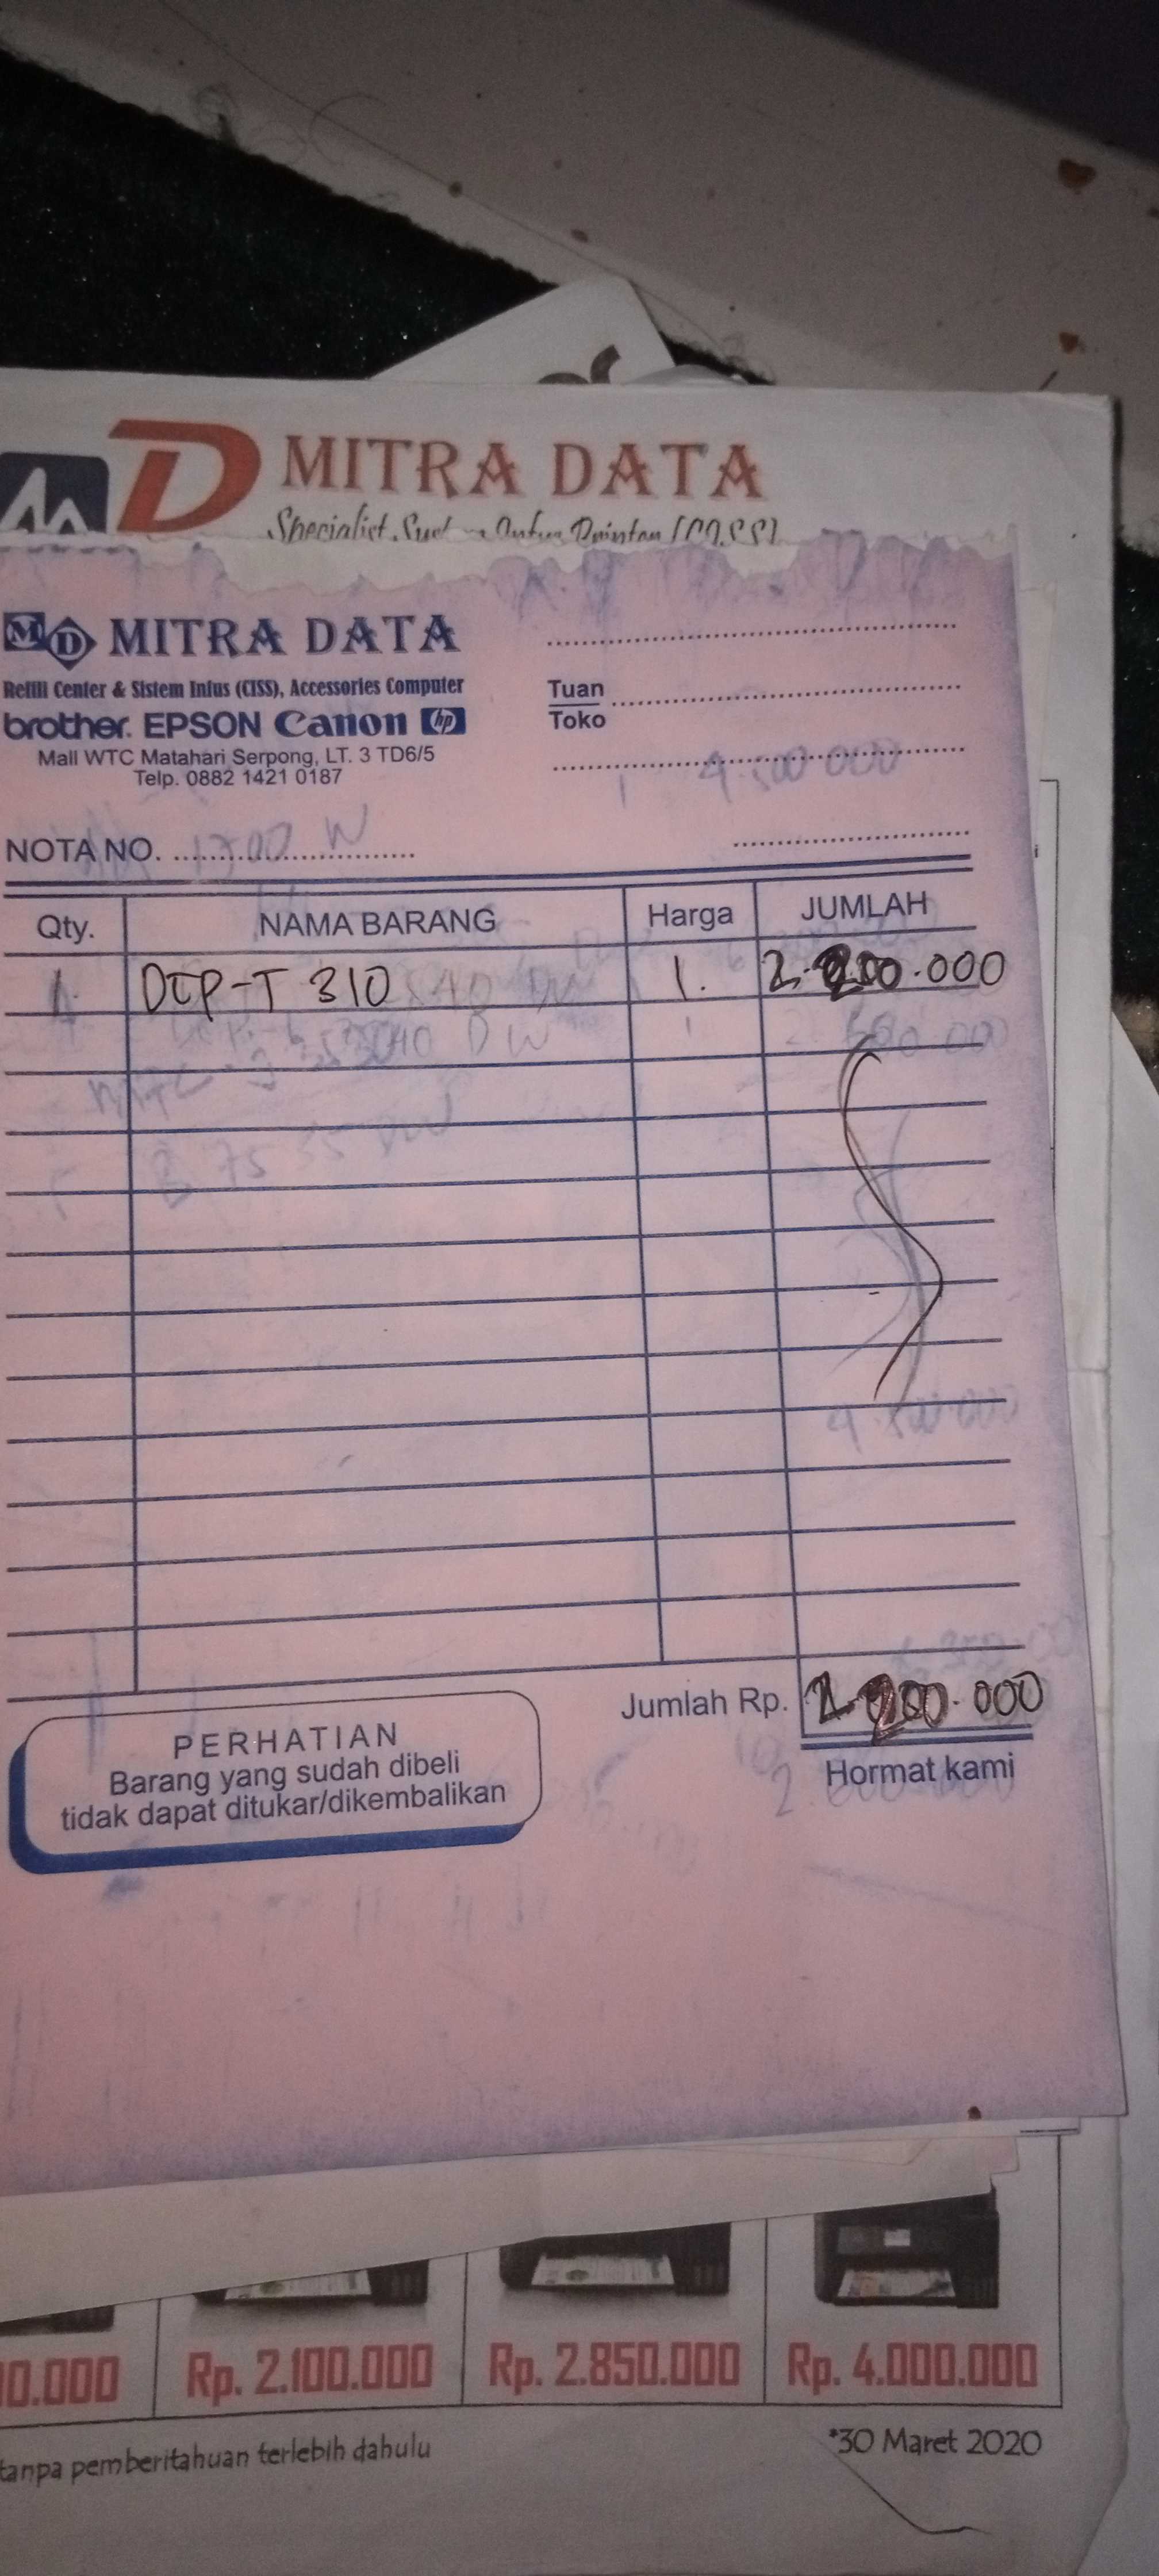 MITRA DATA
Specialist
MD MITRA DATA
Refill Center & Sistem Infus (CISS), Accessories Computer
brother. EPSON Canon hp
Mall WTC Matahari Serpong, LT. 3 TD6/5
Telp. 0882 1421 0187
Tuan
Toko
NOTA NO.
Qty. NAMA BARANG Harga JUMLAH
1. DCP-T 310 1. 2.200.000
Jumlah Rp. 2.200.000
PERHATIAN
Barang yang sudah dibeli
tidak dapat ditukar/dikembalikan
Hormat kami
0.000 Rp. 2.100.000 Rp. 2.850.000 Rp. 4.000.000
tanpa pemberitahuan terlebih dahulu
*30 Maret 2020